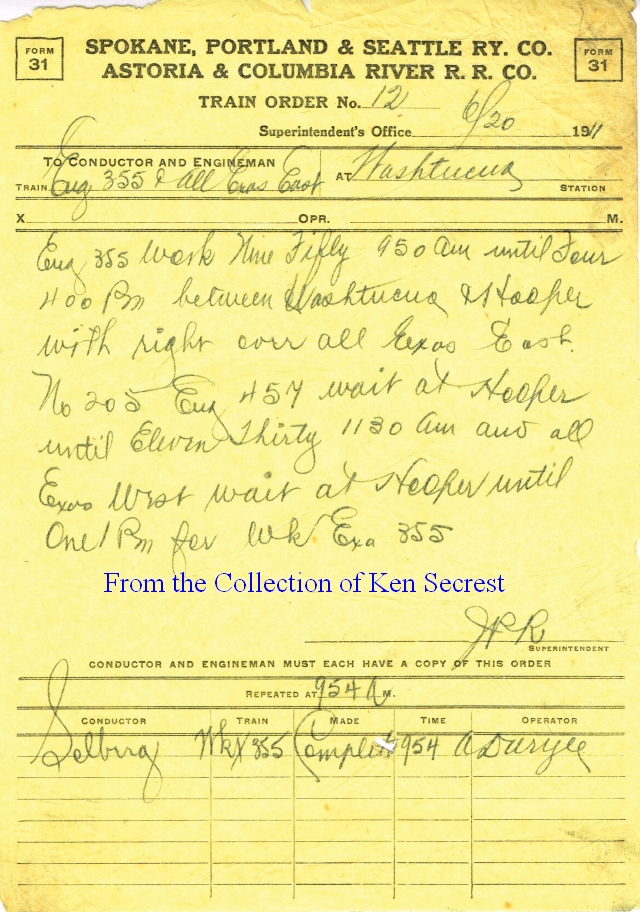 FORM 31
SPOKANE, PORTLAND & SEATTLE RY. CO.
ASTORIA & COLUMBIA RIVER R. R. CO.
FORM 31
TRAIN ORDER No. 12
Superintendent's Office 6/20 1911
TO CONDUCTOR AND ENGINEMAN
TRAIN Eng 355 & all Exas East AT Washtucna STATION
X OPR. M.
Eng 355 Work Nine Fifty 950 am until Four
400 Pm between Washtucna & Hooper
with right over all Exas East.
No 205 Eng 457 wait at Hooper
until Eleven Thirty 1130 am and all
Exas West wait at Hooper until
One 1 Pm for Wk Exa 355
From the Collection of Ken Secrest
JPR
SUPERINTENDENT
CONDUCTOR AND ENGINEMAN MUST EACH HAVE A COPY OF THIS ORDER
REPEATED AT 954 A M.
CONDUCTOR TRAIN MADE TIME OPERATOR
Selberg WkX 355 Complete 954 A Duryee